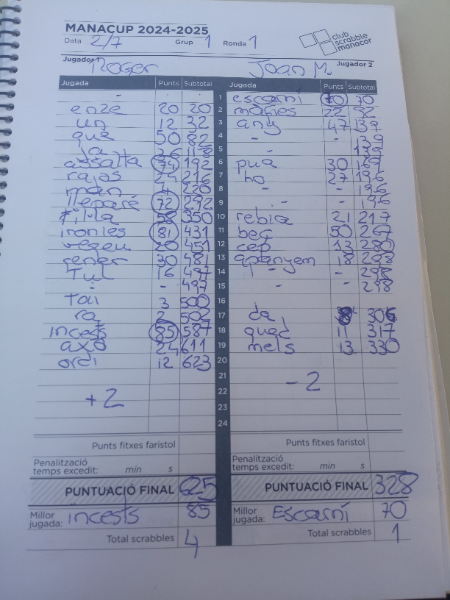 MANACUP 2024-2025
club scrabble manacor
Data 2/7 Grup 1 Ronda 1
Jugador Roger Joan M. Jugador 2
Jugada Punts Subtotal Jugada Punts Subtotal
- - - 1 escarni 70 70
enze 20 20 2 mànies 22 92
un 12 32 3 any 47 139
que 50 82 - - 139
ja 36 118 - -
assalta 192 6 pua 30
rajas 24 216 7 ho 27 196
man 220 8 - - 196
lleparé 72 292 9 - - 196
fil·la 58 350 10 rebia 21 217
ironies 81 431 11 bec 50 267
vegeu 20 451 12 cep 13 280
rener 30 481 13 apanyem 18 298
Tul 16 497 14 - - 298
- - 497 15 - - 298
tai 3 500 16
ra 2 502 17 da 8 306
incests 85 587 18 quec 11 317
això 24 611 19 mels 13 330
ordi 12 623 20
21
+2 22 -2
23
24
Punts fitxes faristol Punts fitxes faristol
Penalització temps excedit: min s Penalització temps excedit: min s
PUNTUACIÓ FINAL 625 PUNTUACIÓ FINAL 328
Millor jugada: incests 85 Millor jugada: Escarní 70
Total scrabbles 4 Total scrabbles 1